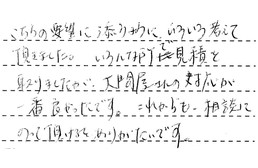 こちらの要望に添うように、いろいろ考えて
頂きました。いろんな所で見積を
取りましたが、大問屋さんの対応が
一番良かったです。これからも相談に
のって頂けるとありがたいです。